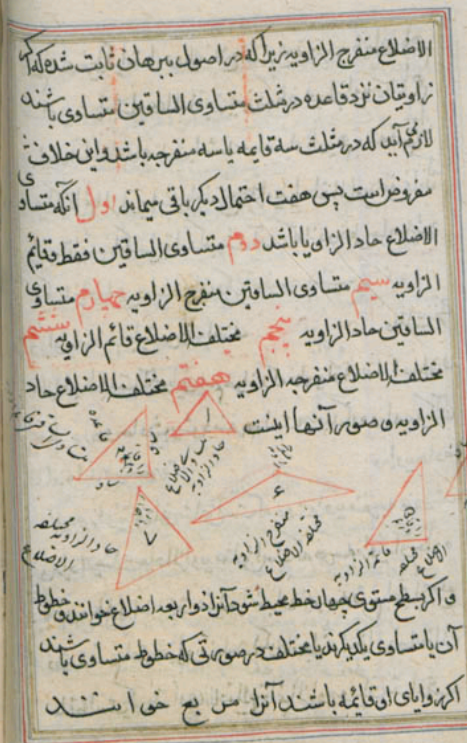 الاضلاع منفرج الزاویه زیرا که در اصول ببرهان ثابت شده که اکر
زاویتان نزد قاعده در مثلث متساوی الساقین متساوی باشند
لازم می آید که در مثلث سه قایمه یا سه منفرجه باشد و این خلاف
مفروض است پس هفت احتمال دیکر باقی میماند اول آنکه متساوی
الاضلاع حاد الزاویا باشد دوم متساوی الساقین فقط قایم
الزاویه سیم متساوی الساقین منفرج الزاویه چهارم متساوی
الساقین حاد الزاویه پنجم مختلف الاضلاع قائم الزاویه ششم
مختلف الاضلاع منفرجه الزاویه هفتم مختلف الاضلاع حاد
الزاویه و صور آنها اینست
۱
قاعده
متساوی الاضلاع
حاد الزاویه
۶
۷
حاد الزاویه مختلفه
الاضلاع
منفرج الزاویه
مختلف الاضلاع
قائمة الزاویه
مختلفه
الاضلاع
و اکر بسطح مستوی چهار خط محیط شود آنرا ذو اربعه اضلاع خوانند و خطوط
آن یا متساوی یکدیکرند یا مختلف در صورتی که خطوط متساوی باشند
اکر زوایای او قائمه باشند آنرا مربع خوانند